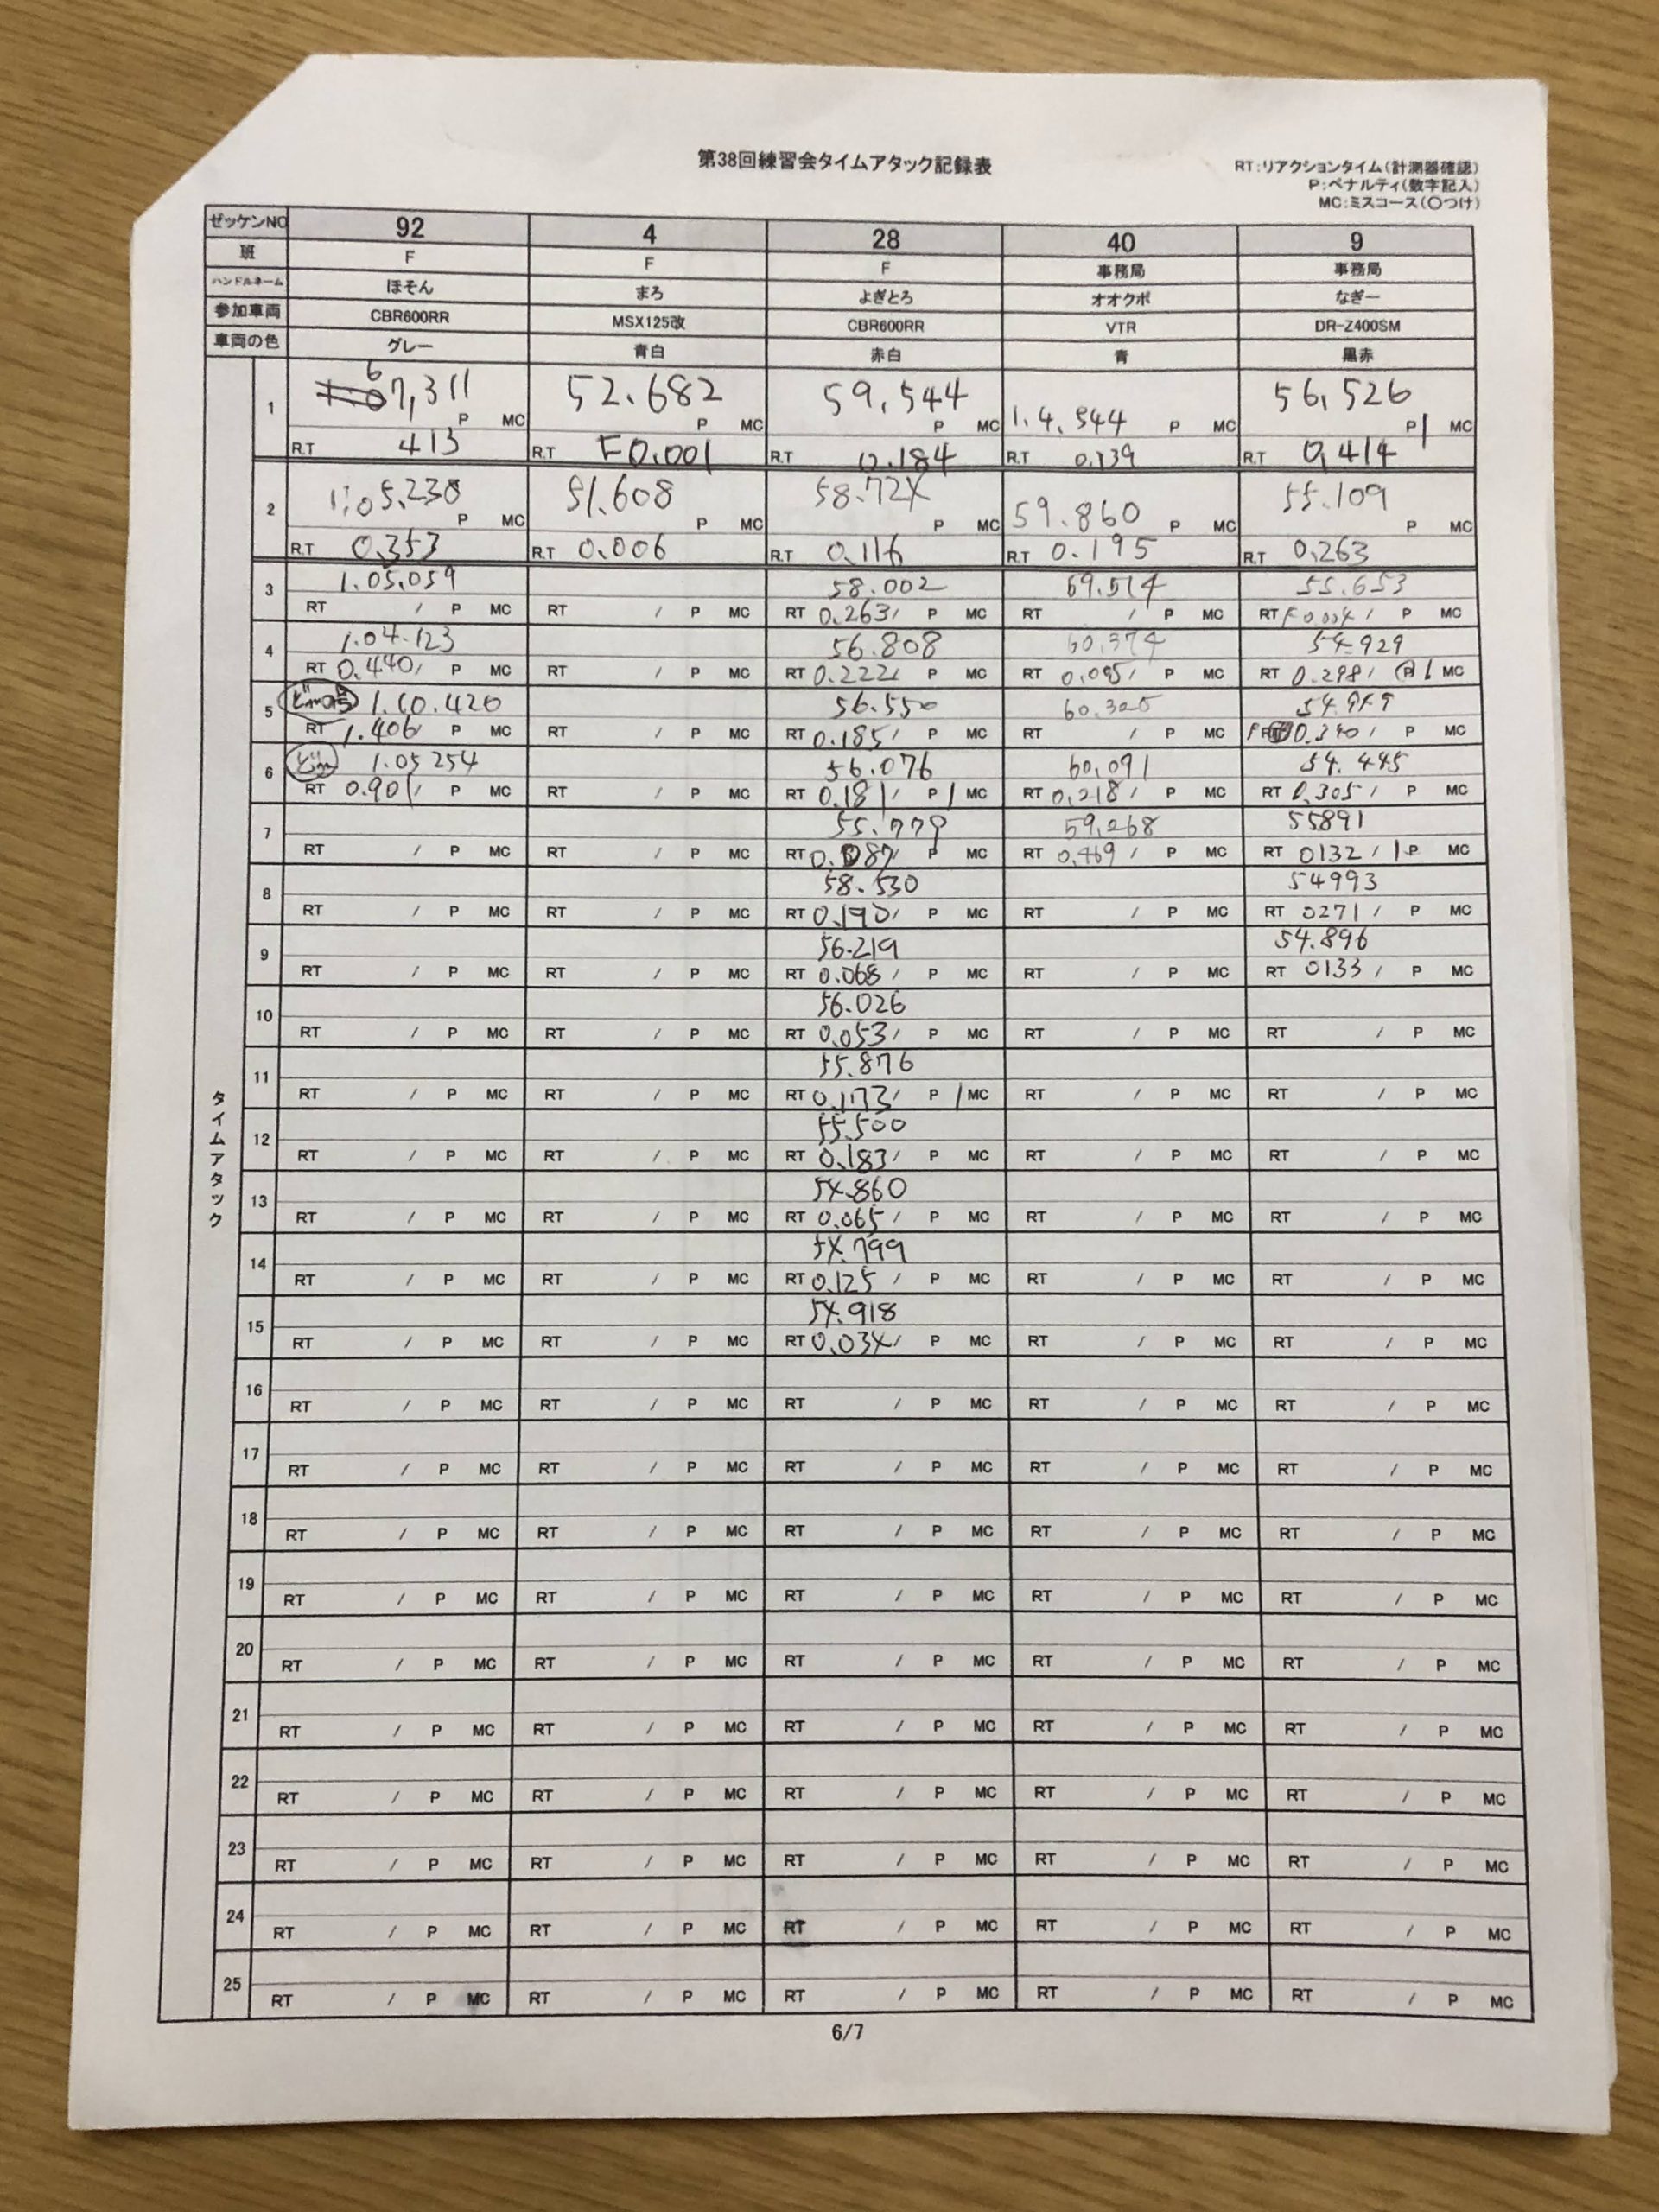 第38回練習会タイムアタック記録表
RT:リアクションタイム(計測器確認)
P:ペナルティ(数字記入)
MC:ミスコース(〇つけ)
ゼッケンNO 92 4 28 40 9
班 F F F 事務局 事務局
ハンドルネーム ほそん まろ よぎとろ オオクボ なぎー
参加車両 CBR600RR MSX125改 CBR600RR VTR DR-Z400SM
車両の色 グレー 青白 赤白 青 黒赤
タイムアタック
1 67,311 52.682 59,544 1.4.544 56,526
P MC P MC P MC P MC P 1 MC
R.T 413 R.T F0.001 R.T 0.184 R.T 0.139 R.T 0,414
2 1:05.238 51.608 58.724 59.860 55.109
P MC P MC P MC P MC P MC
R.T 0.353 R.T 0.006 R.T 0.116 R.T 0.195 R.T 0.263
3 1.05.059 58.002 59.514 55.653
RT / P MC RT / P MC RT 0.263/ P MC RT / P MC RT F0.004/ P MC
4 1.04.123 56.808 60.374 54.929
RT 0.440/ P MC RT / P MC RT 0.222/ P MC RT 0.095/ P MC RT 0.298/ P 1 MC
5 1.10.420 56.550 60.325 54.949
RT 1.406/ P MC RT / P MC RT 0.185/ P MC RT / P MC RT 0.340/ P MC
6 1.05254 56.076 60.091 54.445
RT 0.901/ P MC RT / P MC RT 0.181/ P 1 MC RT 0.218/ P MC RT 0.305/ P MC
7 55.779 59.268 55891
RT / P MC RT / P MC RT 0.087/ P MC RT 0.469/ P MC RT 0132/ 1 P MC
8 58.530 54993
RT / P MC RT / P MC RT 0.190/ P MC RT / P MC RT 0271/ P MC
9 56.219 54.896
RT / P MC RT / P MC RT 0.068/ P MC RT / P MC RT 0133/ P MC
10 56.026
RT / P MC RT / P MC RT 0.053/ P MC RT / P MC RT / P MC
11 55.876
RT / P MC RT / P MC RT 0.173/ P 1 MC RT / P MC RT / P MC
12 55.500
RT / P MC RT / P MC RT 0.183/ P MC RT / P MC RT / P MC
13 54.860
RT / P MC RT / P MC RT 0.065/ P MC RT / P MC RT / P MC
14 54.799
RT / P MC RT / P MC RT 0.125/ P MC RT / P MC RT / P MC
15 54.918
RT / P MC RT / P MC RT 0.034/ P MC RT / P MC RT / P MC
16
RT / P MC RT / P MC RT / P MC RT / P MC RT / P MC
17
RT / P MC RT / P MC RT / P MC RT / P MC RT / P MC
18
RT / P MC RT / P MC RT / P MC RT / P MC RT / P MC
19
RT / P MC RT / P MC RT / P MC RT / P MC RT / P MC
20
RT / P MC RT / P MC RT / P MC RT / P MC RT / P MC
21
RT / P MC RT / P MC RT / P MC RT / P MC RT / P MC
22
RT / P MC RT / P MC RT / P MC RT / P MC RT / P MC
23
RT / P MC RT / P MC RT / P MC RT / P MC RT / P MC
24
RT / P MC RT / P MC RT / P MC RT / P MC RT / P MC
25
RT / P MC RT / P MC RT / P MC RT / P MC RT / P MC
6/7